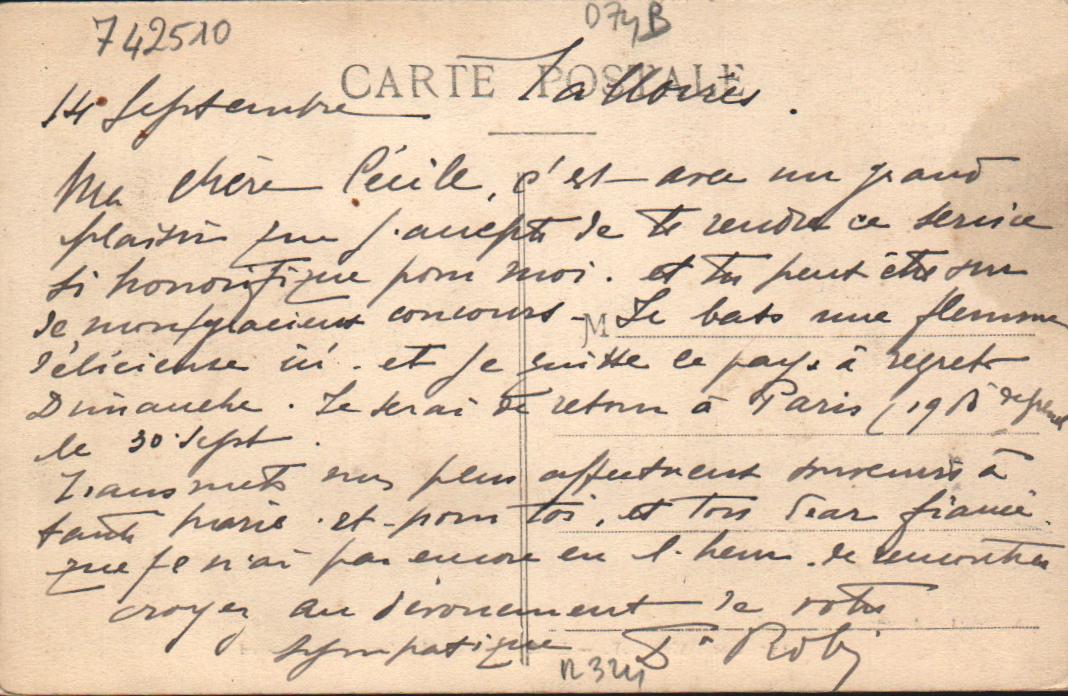 742510
D74B
CARTE POSTALE
Talloires.
14 Septembre
Ma chère Cécile, c'est avec un grand
plaisir que j'accepte de te rendre ce service
si honorifique pour moi. et tu peux être sur
de mon gracieux concours - Je bats une flemme
délicieuse ici. et je quitte ce pays à regret
Dimanche. Je serai de retour à Paris (19 B
le 30 Sept.
M
Transmets mes plus affectueux souvenirs à
tante Marie. et pour toi, et ton dear fiancé
que je n'ai pas encore eu l'heur de rencontrer
croyez au dévouement de votre
sympatique
Roby
R 324